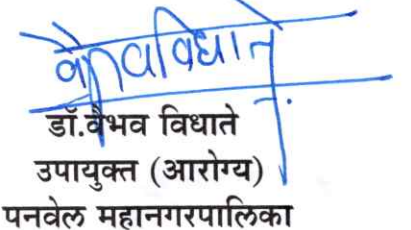 वैभव विधाते
डॉ.वैभव विधाते
उपायुक्त (आरोग्य)
पनवेल महानगरपालिका